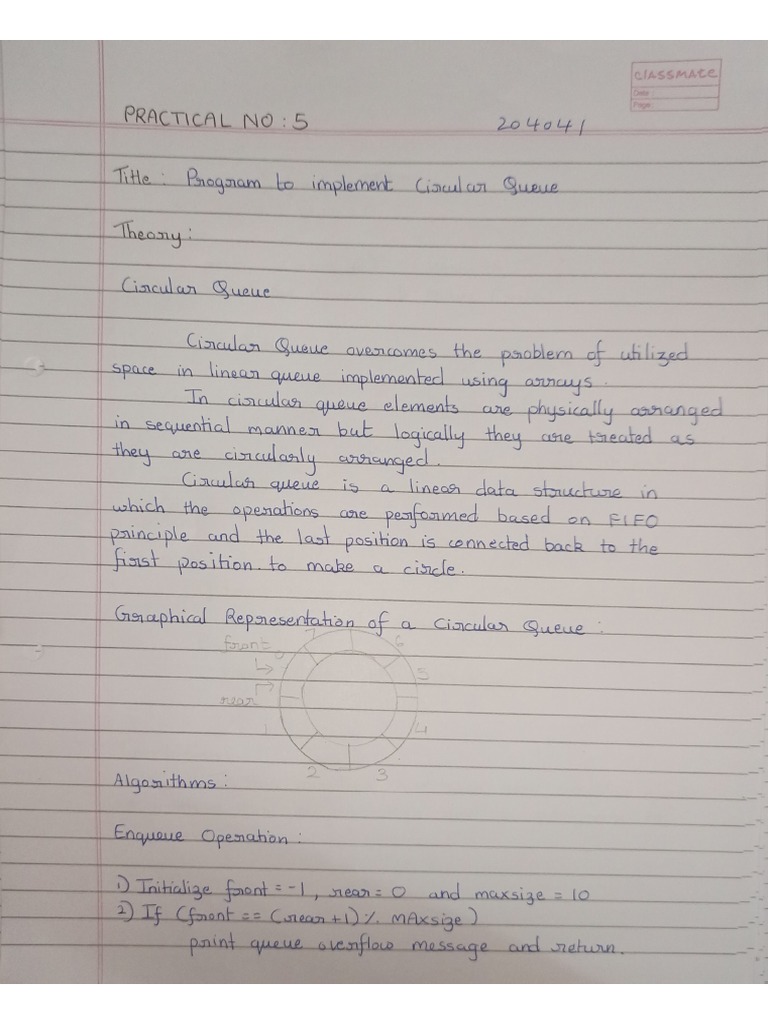 classmate
Date :
Page :
PRACTICAL NO : 5
204041
Title : Program to implement Circular Queue
Theory :
Circular Queue
Circular Queue overcomes the problem of utilized
space in linear queue implemented using arrays.
In circular queue elements are physically arranged
in sequential manner but logically they are treated as
they are circularly arranged.
Circular queue is a linear data structure in
which the operations are performed based on FIFO
principle and the last position is connected back to the
first position to make a circle.
Graphical Representation of a Circular Queue :
front
0
7
6
5
rear
1
4
2
3
Algorithms :
Enqueue Operation :
1) Initialize front = -1, rear = 0 and maxsize = 10
2) If (front == (rear + 1) % MAxsize)
print queue overflow message and return.